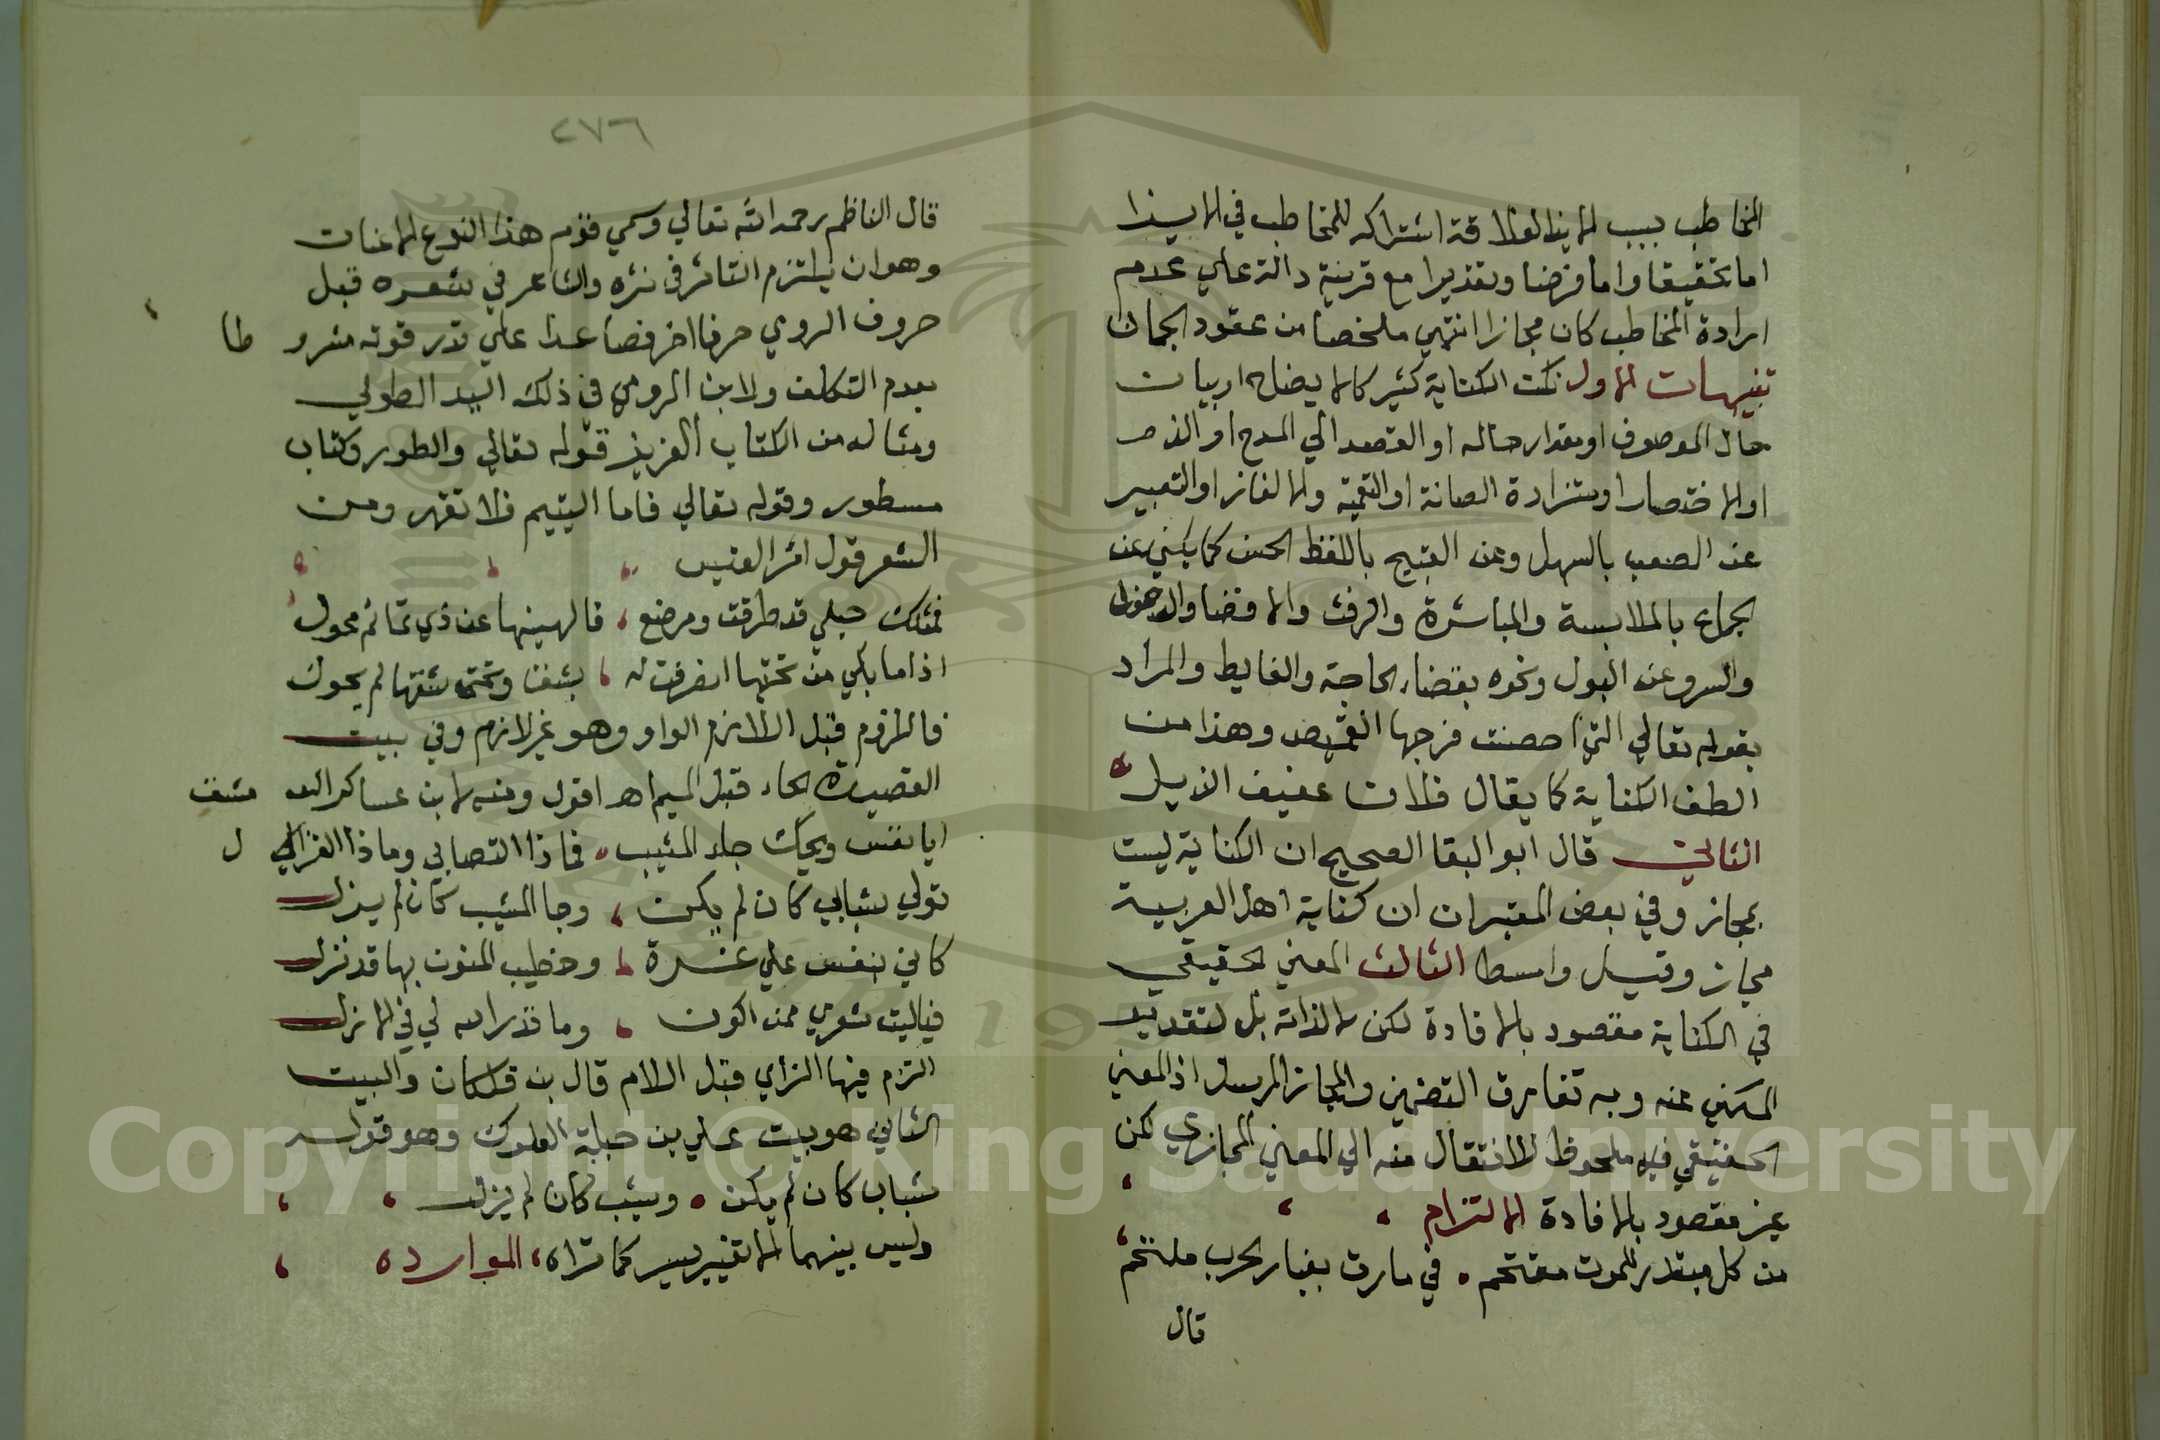 المخاطب بسبب الايذا لعلاقة اشتراكه للمخاطب في الايذا
اما تحقيقا واما فرضا وتقديرا مع قرينة دالة علي عدم
ارادة المخاطب كان مجازا انتهي ملخصا من عقود الجمان
تنبيهات الاول نكت الكناية كثير كالايضاح او بيان
حال الموصوف او مقدار حاله او القصد الي المدح او الذم
او الاختصار او الصيانة او التعمية والالغاز او التعبير
عن الصعب بالسهل وعن القبيح باللفظ الحسن كما يكني عن
الجماع بالملابسة والمباشرة والرفث والافضا والدخول
والسر وعن البول ونحوه بقضاء الحاجة والغايط والمراد
بقوله تعالي التي احصنت فرجها القميص وهذا من
الطف الكناية كما يقال فلان عفيف الذيل
الثاني قال ابو البقا الصحيح ان الكناية ليست
بمجاز وفي بعض المعتبران ان كناية اهل العربية
مجاز وقيل واسطا الثالث المعني الحقيقي
في الكناية مقصود بالافادة لكن لا لذاته بل لتقدير
المكني عنه وبه تفارق التضمين والمجاز المرسل اذ المعني
الحقيقي فيه ملحوظ للانتقال منه الي المعني المجازي لكن
غير مقصود بالافادة الالتزام
من كل مبتدر للموت مقتحم في مارق بغبار الحرب ملتحم
قال
٢٧٦
قال الناظم رحمه الله تعالي وسمي قوم هذا النوع الاعنات
وهو ان يلتزم الناثر في نثره والشاعر في شعره قبل
حروف الروي حرفا اخر فصاعدا علي قدر قوته مشرو طا
بعدم التكلف ولابن الرومي في ذلك اليد الطولي
ومثاله من الكتاب العزيز قوله تعالي والطور وكتاب
مسطور وقوله تعالي فاما اليتيم فلا تقهر ومن
الشعر قول امرا القيس
فمثلك حبلي قد طرقت ومرضع فالهيتها عن ذي تمائم محول
اذا ما بكي من تحتها انصرفت له بشق وتحتي شقها لم يحول
فالملزوم قبل اللازم الواو وهو غير لازم وفي بيت
القصيدة الحاء قبل الميم اهـ اقول ومنه لابن عساكر الد مشق
ايا نفس ويحك جاء المشيب فماذا التصابي وماذا الغزل
تولي شبابي كان لم يكن وجا المشيب كان لم يزل
كاني بنفسي علي غرة وخطيب المنون بها قد نزل
فياليت شعري ممن اكون وما قدر الله لي في الازل
التزم فيها الزاي قبل اللام قال بن خلكان والبيت
الثاني هو بيت علي بن جبلة العكوك وهو قوله
شباب كان لم يكن وشيب كان لم يزل
وليس بينهما الا تغيير يسير كما تراه المواردة
Copyright © King Saud University